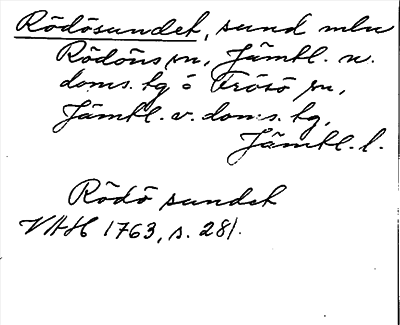 Rödösundet, sund mln
Rödöns sn, Jämtl. n.
doms. tg o Frösö sn,
Jämtl. v. doms. tg,
Jämtl. l.
Rödö sundet
VAH 1763, s. 281.